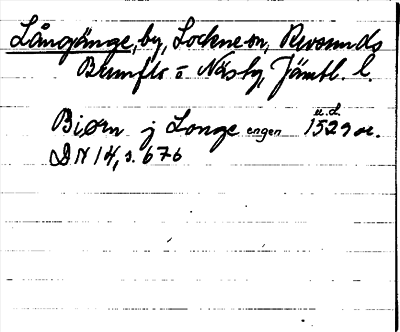 Långänge, by, Lockne sn, Revsunds
Brunflo o Näsby, Jämtl. l.
Biørn j Longe engen 1529 or.
u.d.
DN 14, s. 676